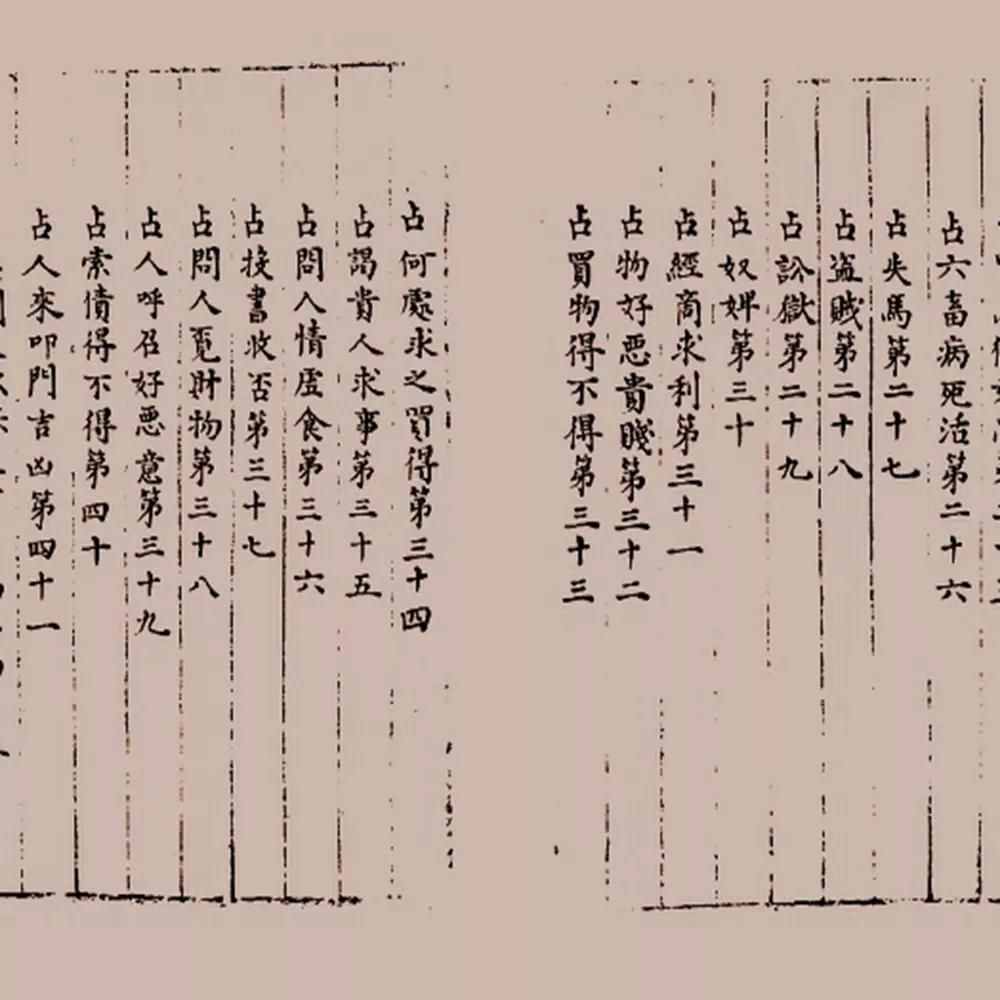 占六畜病死活第二十六
占失馬第二十七
占盗賊第二十八
占訟獄第二十九
占奴婢第三十
占經商求利第三十一
占物好悪貴賤第三十二
占買物得不得第三十三
占何處求之買得第三十四
占謁貴人求事第三十五
占問人情虗食第三十六
占投書收否第三十七
占問人覓財物第三十八
占人呼召好悪意第三十九
占索債得不得第四十
占人來叩門吉凶第四十一